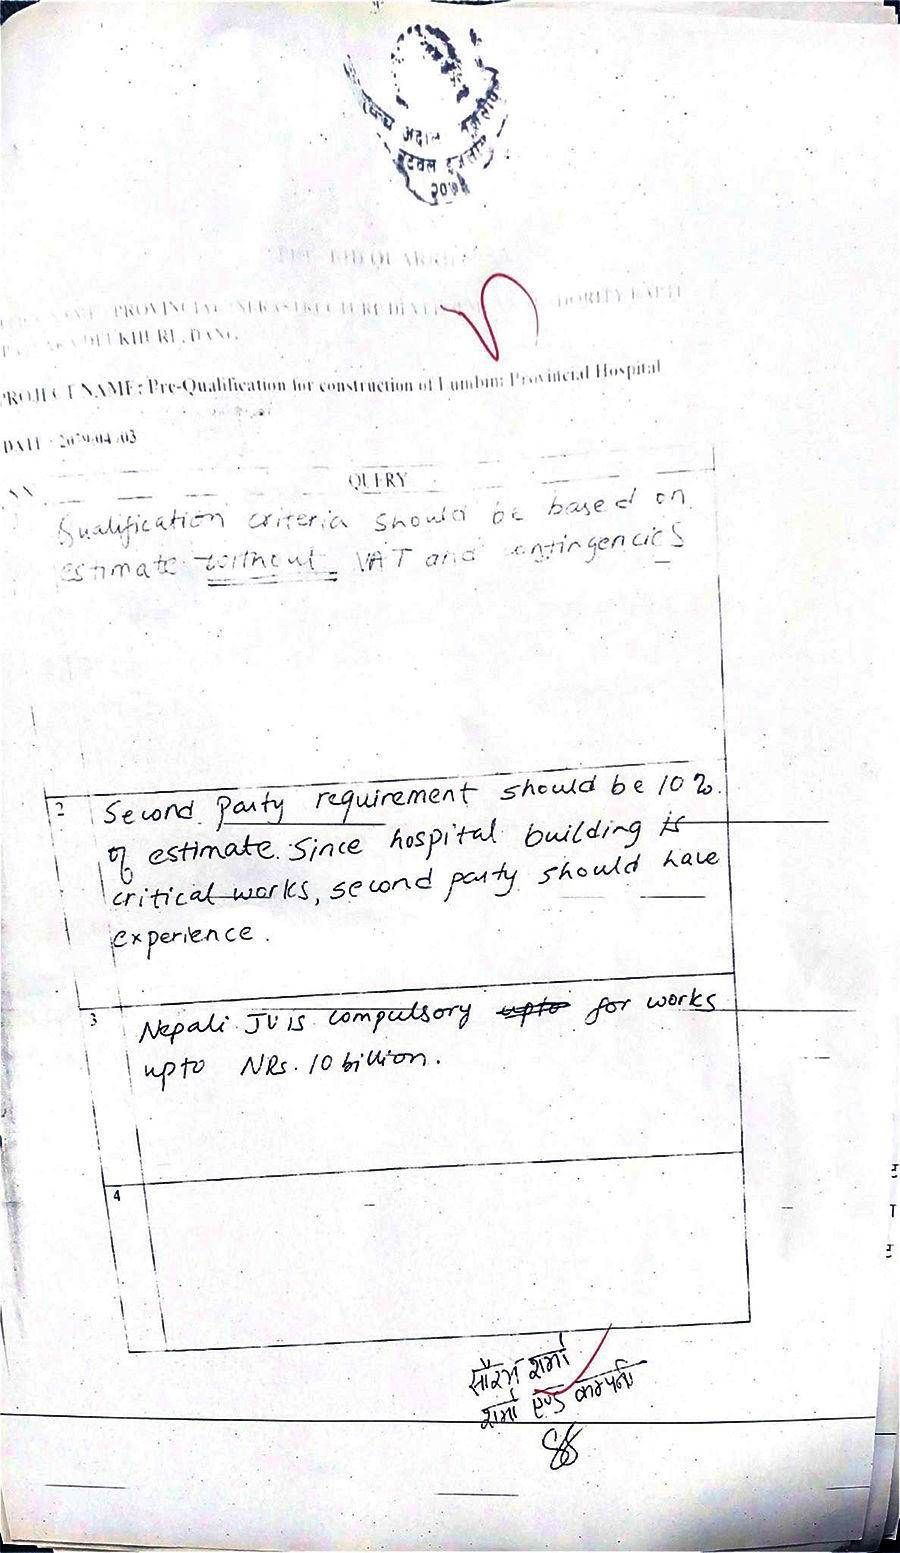 अदालत
बुटवल इजलास
PRE - BID
PROVINCIAL INFRASTRUCTURE DEVELOPMENT AUTHORITY
DEUKHURI, DANG
PROJECT NAME : Pre-Qualification for construction of Lumbini Provincial Hospital
DATE : 2079/04/03
QUERY
Qualification criteria should be based on
estimate without VAT and contingencies
2 Second party requirement should be 10%
of estimate. Since hospital building is
critical works, second party should have
experience.
3 Nepali JV is compulsory upto for works
upto NRs. 10 billion.
4
सौरभ शर्मा
शर्मा एण्ड कम्पनी